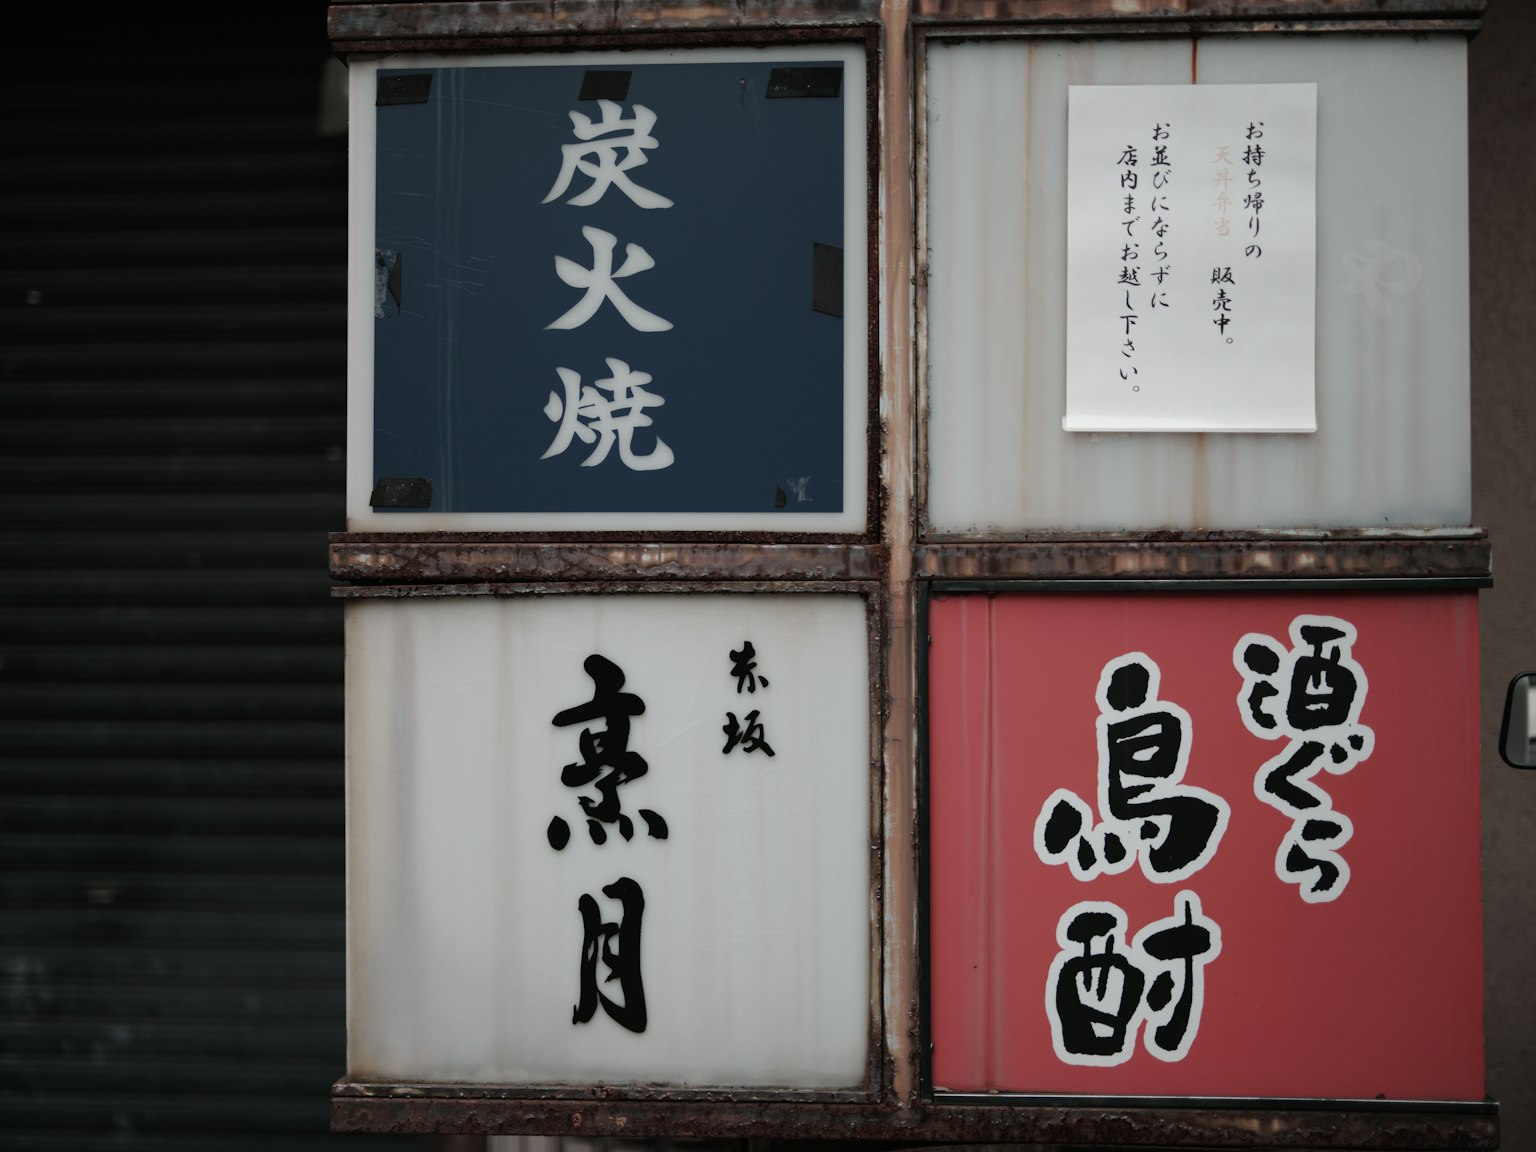 炭火焼
お持ち帰りの
天丼弁当 販売中。
お並びにならずに
店内までお越し下さい。
赤坂
烹月
酒ぐら
鳥酎